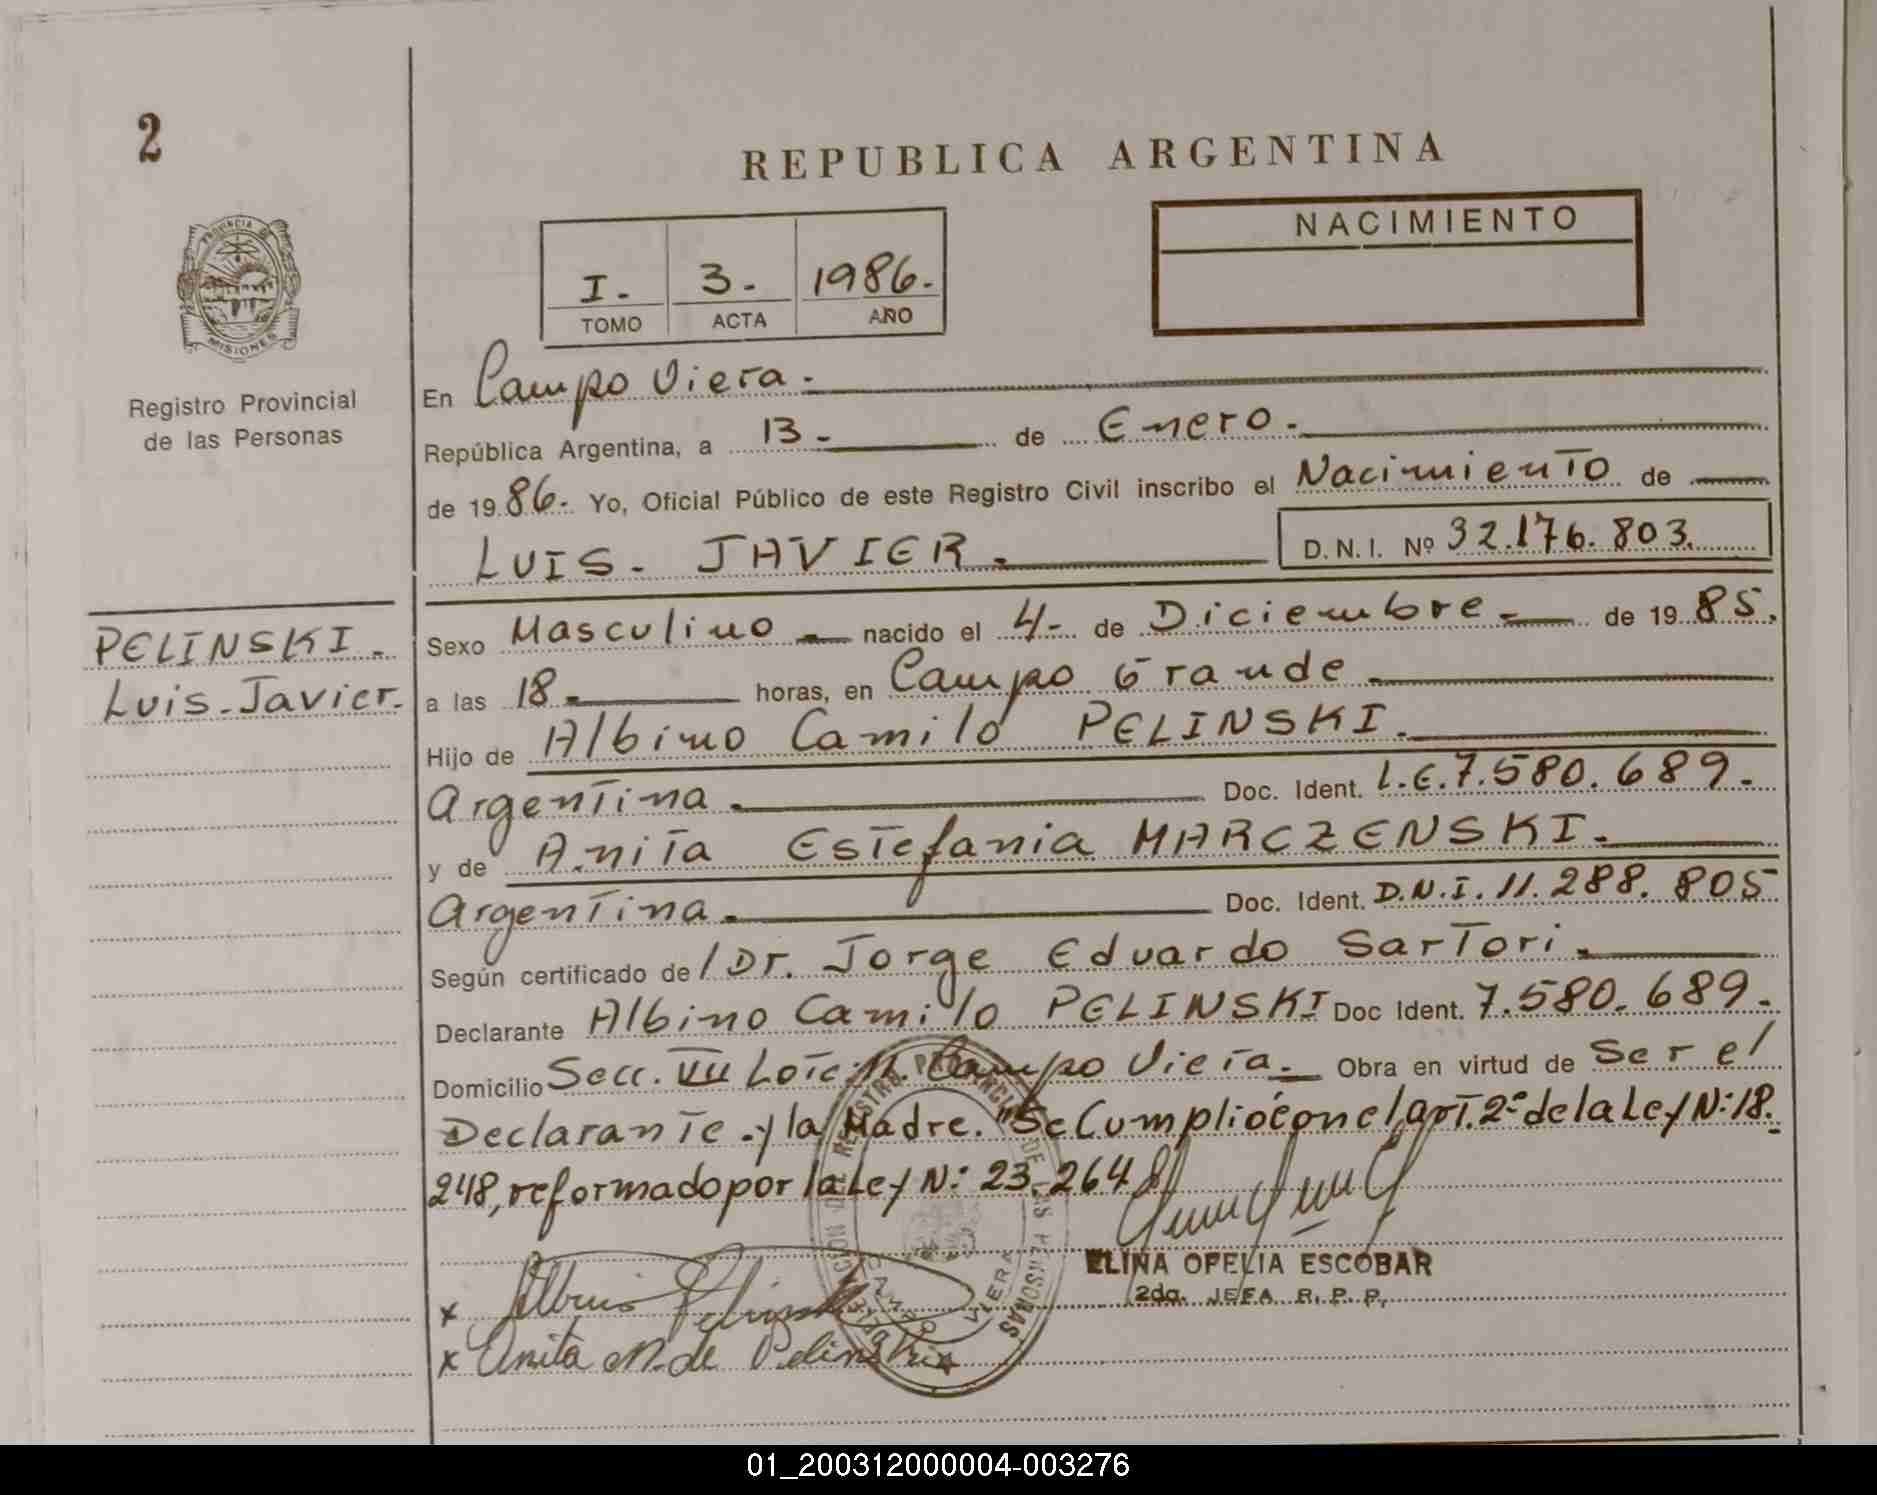 2
REPUBLICA ARGENTINA
NACIMIENTO
I. 3. 1986.
TOMO ACTA AÑO
PROVINCIA DE
MISIONES
Registro Provincial
de las Personas
En Campo Viera.
República Argentina, a 13. de Enero.
de 1986. Yo, Oficial Público de este Registro Civil inscribo el Nacimiento de
LUIS. JAVIER. D.N.I. Nº 32.176.803.
PELINSKI.
Luis. Javier.
Sexo Masculino nacido el 4. de Diciembre de 1985.
a las 18. horas, en Campo Grande
Hijo de Albino Camilo PELINSKI.
Argentina. Doc. Ident. L.E.7.580.689.
y de Anita Estefania MARCZENSKI.
Argentina. Doc. Ident. D.N.I. 11.288.805
Según certificado de / Dr. Jorge Eduardo Sartori.
Declarante Albino Camilo PELINSKI Doc Ident. 7.580.689.
Domicilio Secc. VII Lote: 11. Campo Viera. Obra en virtud de Ser el
Declarante. y la Madre. "Se Cumplió con el art. 2º de la Ley N: 18.
248, reformado por la Ley N: 23.264
ELINA OFELIA ESCOBAR
2da. JEFA R. P. P.
x Albino Pelinski
x Anita M. de Pelinski
CAMPO VIERA
01_200312000004-003276